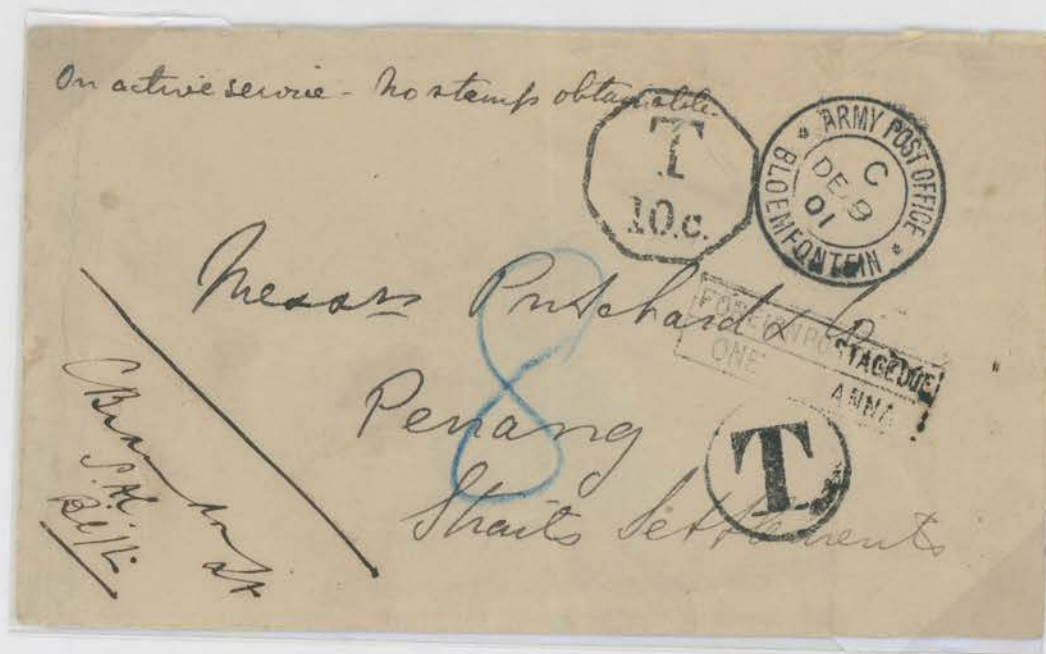 On active service - No stamps obtainable
T
10.c.
ARMY POST OFFICE
C
DE 9
01
BLOEMFONTEIN
Messrs Pritchard & Co
FOREIGN POSTAGE DUE
ONE ANNA
8
Penang
T
Straits Settlements